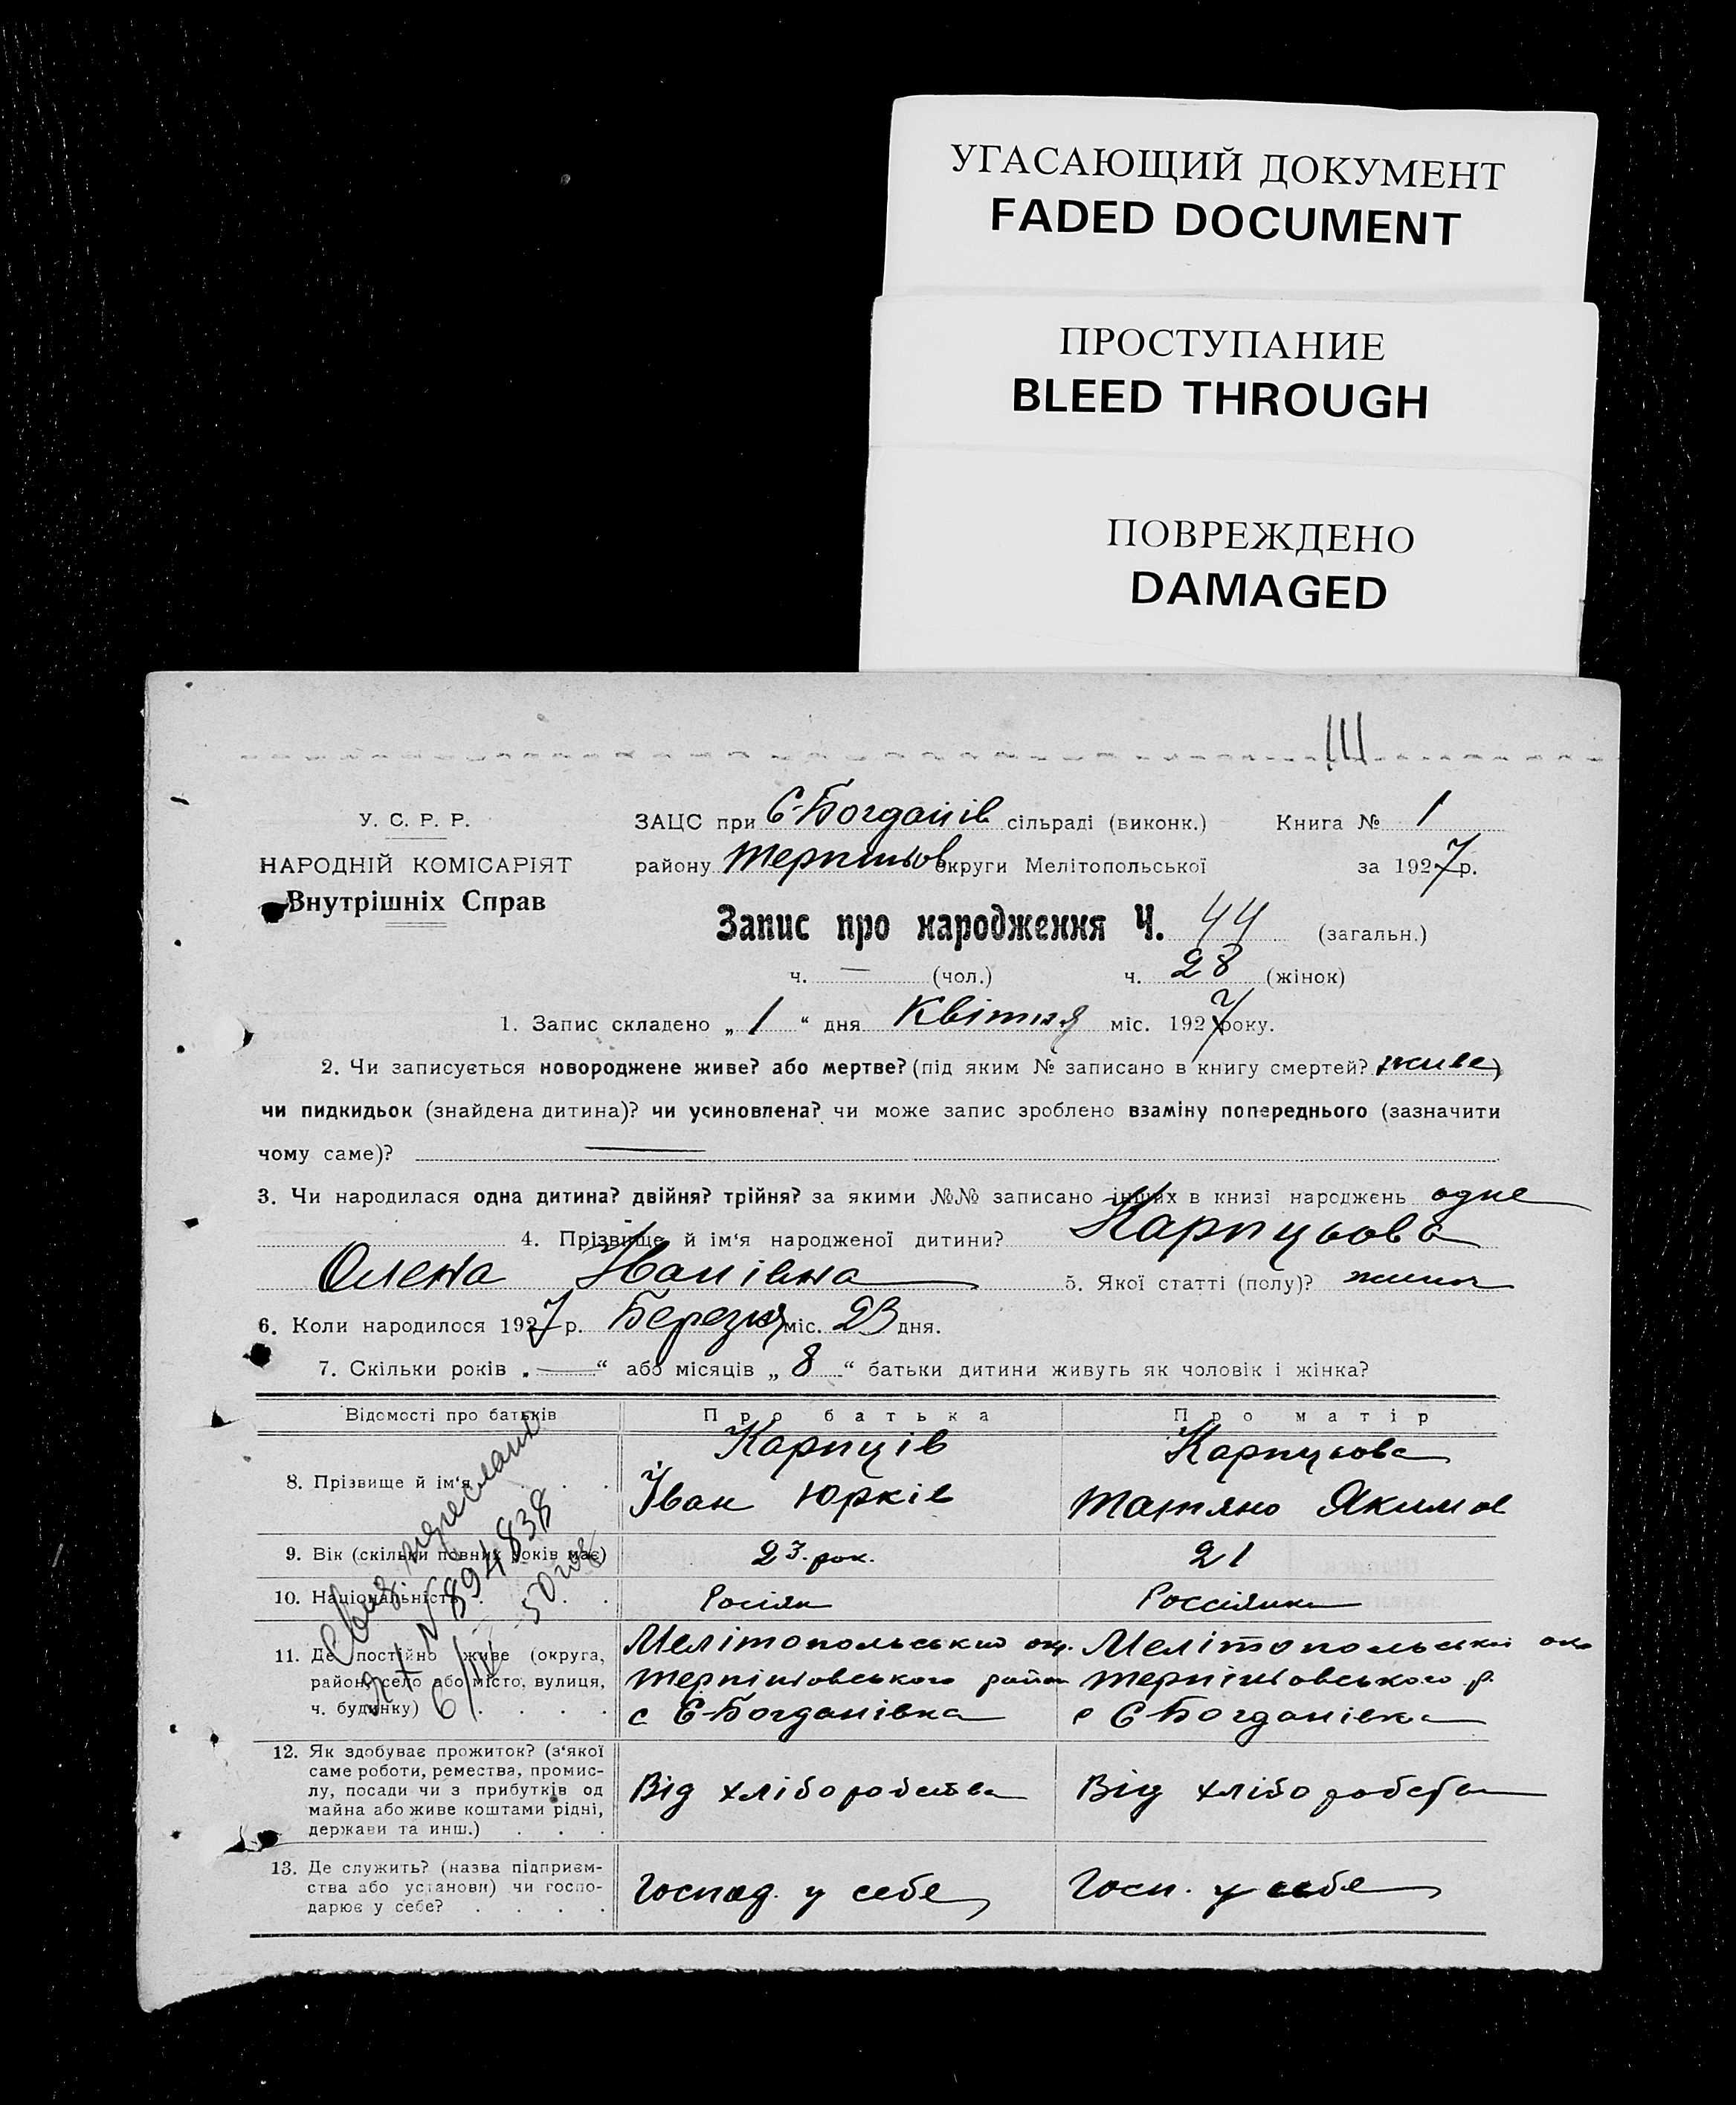 УГАСАЮЩИЙ ДОКУМЕНТ
FADED DOCUMENT
ПРОСТУПАНИЕ
BLEED THROUGH
ПОВРЕЖДЕНО
DAMAGED
У. С. Р. Р.
НАРОДНІЙ КОМІСАРІЯТ
Внутрішніх Справ
ЗАЦС при Є-Богданів сільраді (виконк.) Книга № 1
району Терпіньов округи Мелітопольської за 1927 р.
Запис про народження Ч. 44 (загальн.)
ч. — (чол.) ч. 28 (жінок)
1. Запис складено „ 1 “ дня Квітня міс. 1927 року.
2. Чи записується новороджене живе? або мертве? (під яким № записано в книгу смертей? живе)
чи пидкидьок (знайдена дитина)? чи усиновлена? чи може запис зроблено взаміну попереднього (зазначити
чому саме)? —
3. Чи народилася одна дитина? двійня? трійня? за якими №№ записано інших в книзі народжень одне
4. Прізвище й ім‘я народженої дитини? Карпцьова
Олена Іванівна 5. Якої статті (полу)? жіноч
6. Коли народилося 1927 р. Березня міс. 23 дня.
7. Скільки років „ — “ або місяців „ 8 “ батьки дитини живуть як чоловік і жінка?
Відомості про батьків Про батька Про матір
8. Прізвище й ім‘я . . . .
Карпців
Іван Юрків
Карпцьова
Татяна Якимов
9. Вік (скільки повних років має) 23. рок. 21
10. Національність . . . Росіян Россіянка
11. Де постійно живе (округа,
район, село або місто, вулиця,
ч. будинку) . . . .
Мелітопольський окр.
Терпіньовського район
с Є-Богданівка
Мелітопольської окр
Терпіньовського р.
с Є-Богданівка
12. Як здобуває прожиток? (з‘якої
саме роботи, ремества, промис-
лу, посади чи з прибутків од
майна або живе коштами рідні,
держави та инш.) . . .
Від хліборобства
Від хліборобства
13. Де служить? (назва підприєм-
ства або установи) чи госпо-
дарює у себе? . . . .
Господ. у себе
Госп. у себе
894838
50 года